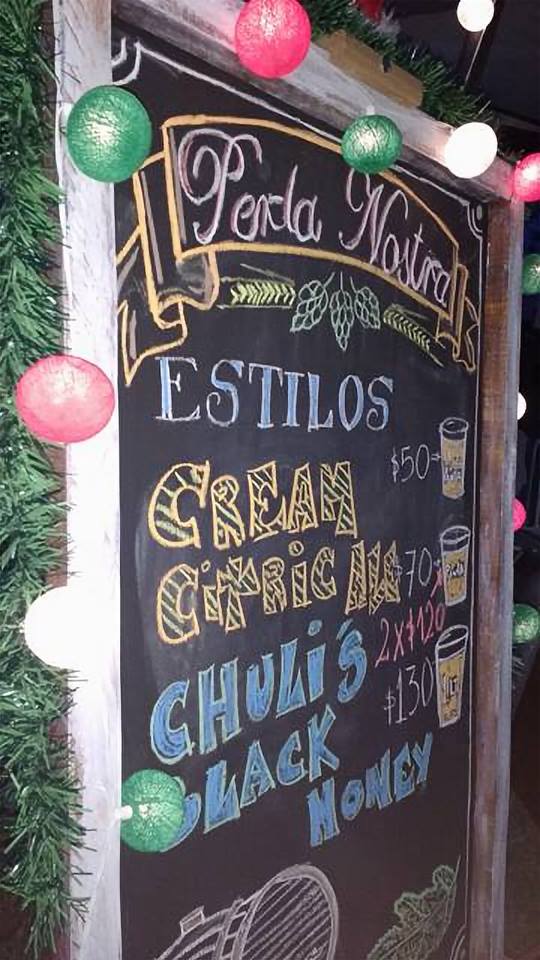 Perla Nostra
ESTILOS
$50
CREAM
CiTRiC
$70
2x$120
CHULi'S
$130
BLACK
HONEY